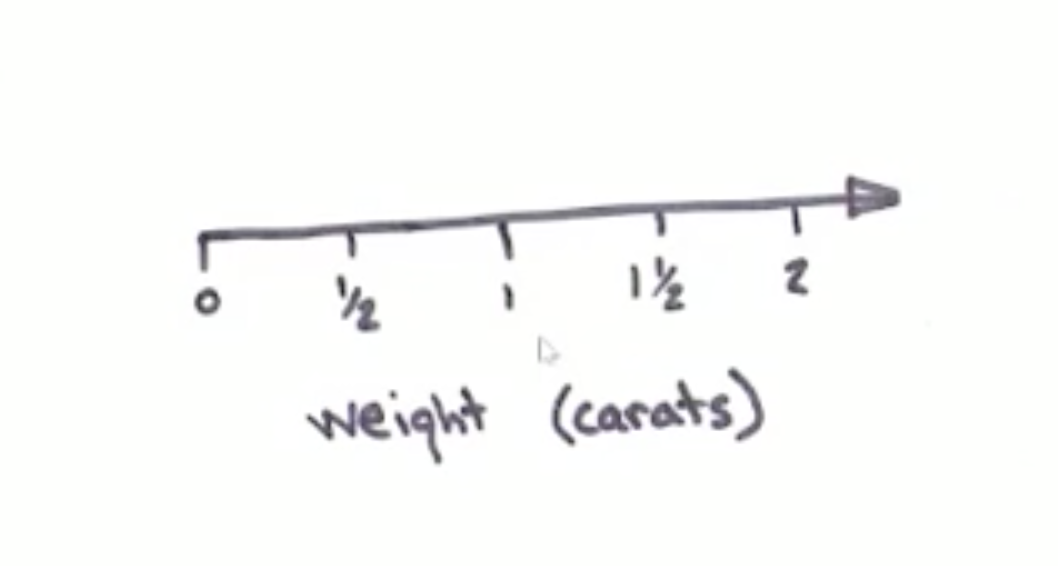 0 ½ 1 1½ 2
weight (carats)